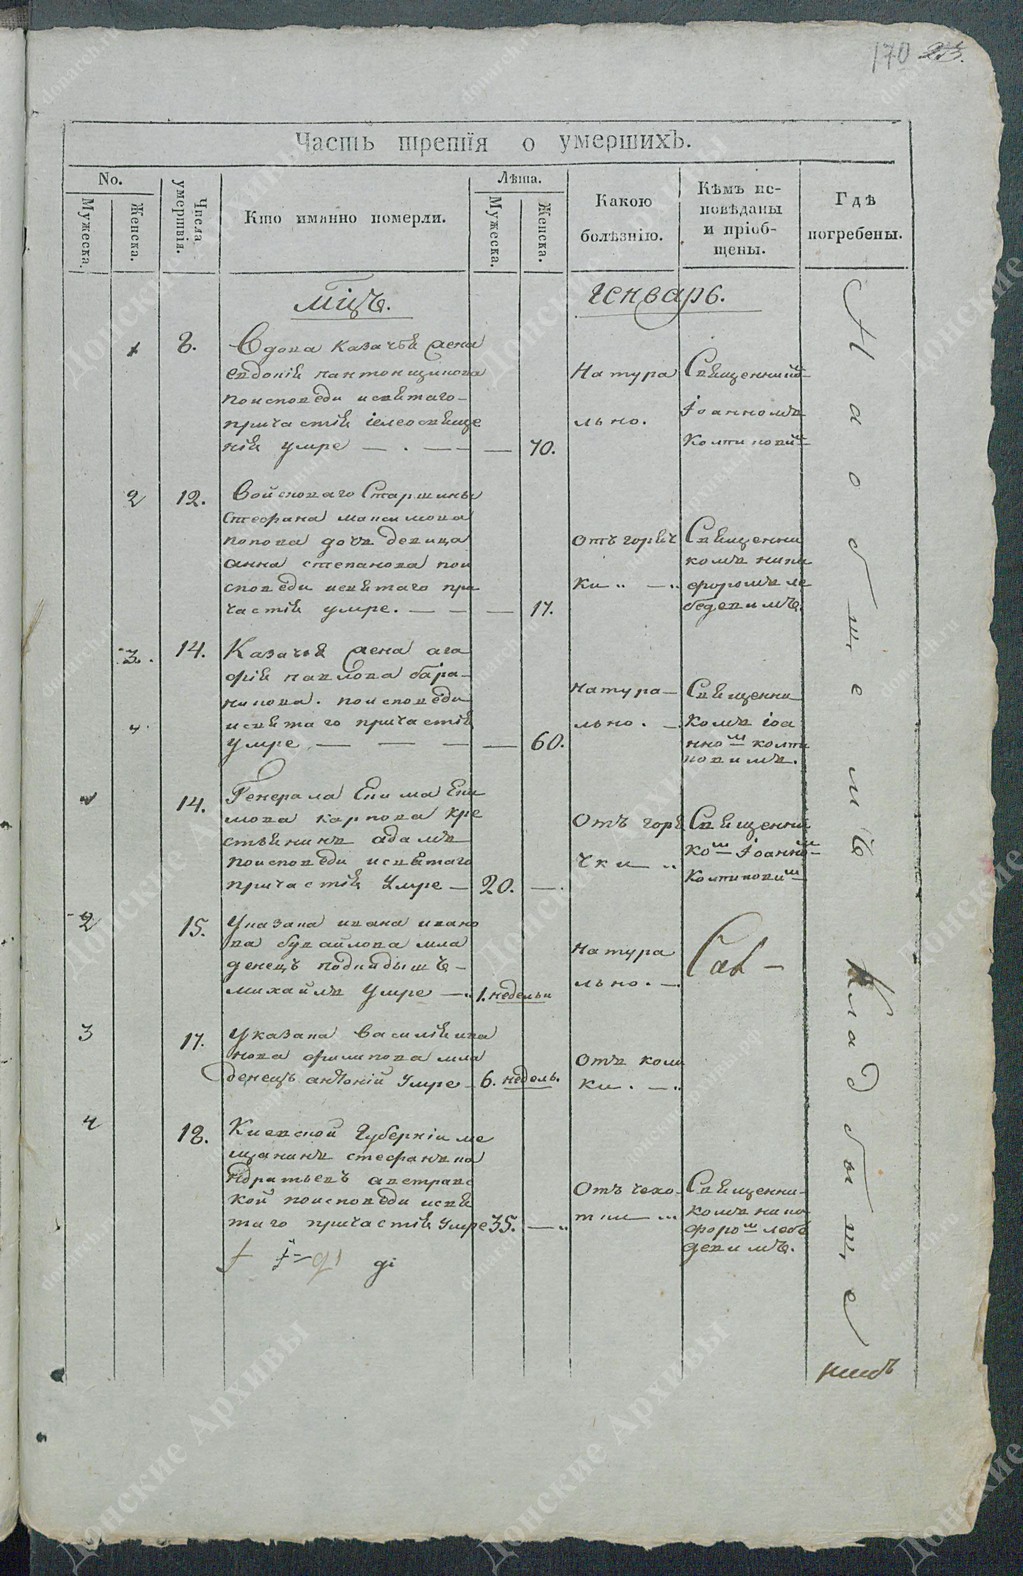 170 23.
Часть третія о умершихъ.
No.
Мужеска.
Женска.
Числа умертвія.
Кто имянно померли.
Лѣта.
Мужеска.
Женска.
Какою болѣзнію.
Кѣмъ исповѣданы и пріобщены.
Гдѣ погребены.
мцъ. генварь.
1 8. Вдова казачья жена
евдокія
поисповеди исвятаго
причастія іелеосвяще
нія умре 70.
Натура
льно.
Священни
Іоанномъ
2 12. Войсковаго Старшины
Стефана максимова
попова дочь девица
анна степанова пои
споведи исвятаго при
частія умре. 17.
Отъ горяч
ки
Священни
комъ ники
форомъ ле
бедевимъ
3. 14. Казачья жена ага
фія павлова бара
никова. поисповеди
исвятаго причастія
умре 60.
натура
льно.
Священни
комъ іоа
нномъ колпи
ковимъ.
1 14. Генерала Екима Еки
мова карпова кре
стьянинъ адамъ
поисповеди исвятаго
причастія умре 20.
Отъ горя
чки
Священни
комъ Іоанномъ
Колпиковимъ
2 15. Указана ивана ивано
ва
денецъ подкидышъ
михайлъ умре 1. недели
натура
льно.
3 17. Указана василія ива
нова филипова мла
денецъ антоній умре 6. недель.
Отъ
ки.
4 18. Киевской Губерніи ме
щанинъ стефанъ ко
ндратьевъ
кой поисповеди исвя
таго причастія умре 35.
Отъ чехо
тки
Священни
комъ нико
форомъ лебе
девимъ.
На общемъ кладбище